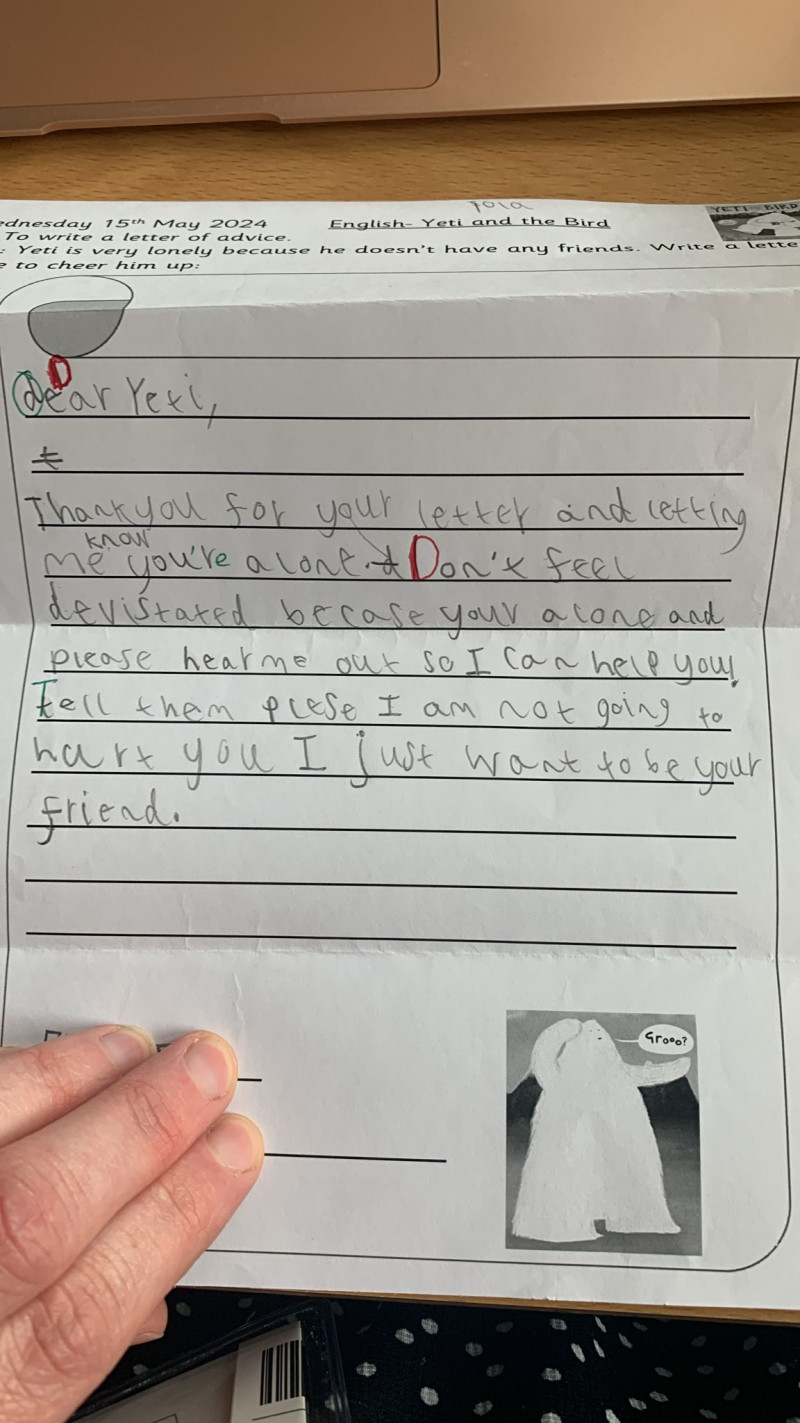 Tola
YETI BIRD
ednesday 15th May 2024 English- Yeti and the Bird
To write a letter of advice.
: Yeti is very lonely because he doesn't have any friends. Write a lette
e to cheer him up:
D
dear Yeti,
t
Thankyou for your letter and letting
know
me you're alone. Don't feel
devistated becase your alone and
please hear me out so I can help you!
Tell them plese I am not going to
hurt you I just want to be your
friend.
Grooo?